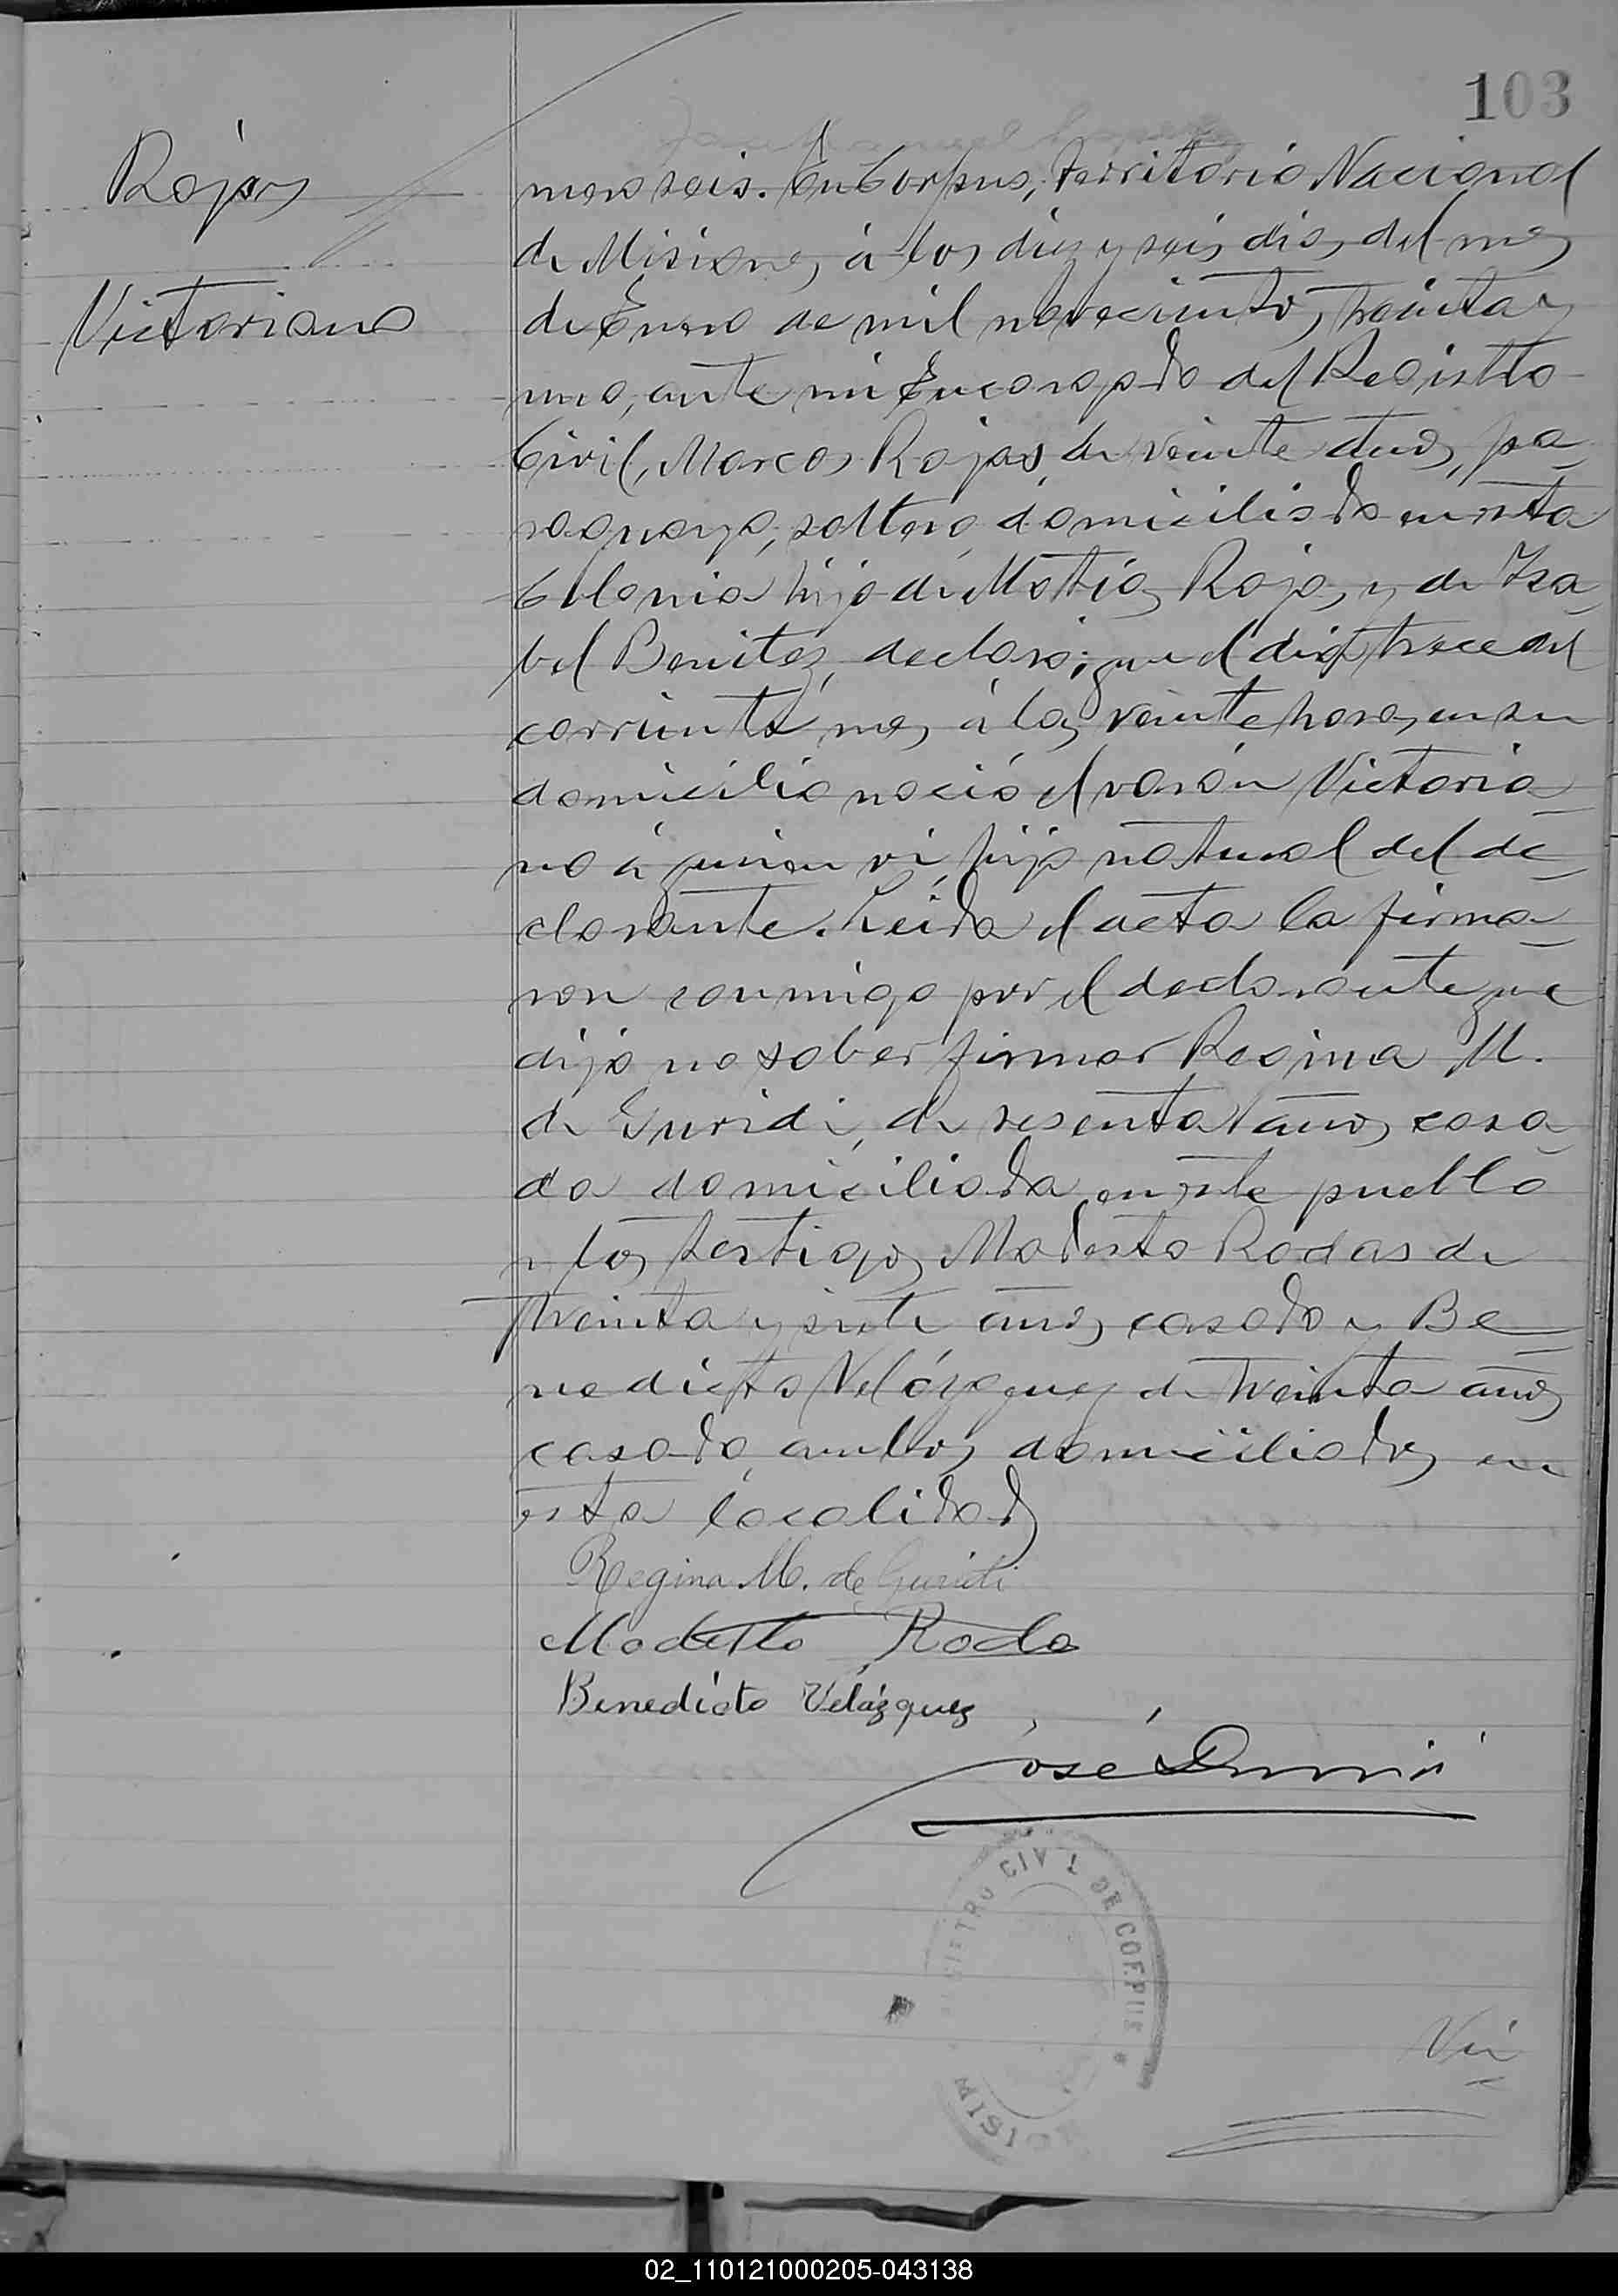 103
Rojas
Victoriano
mero seis. En Corpus, Territorio Nacional
de Misiones á los diez y seis dias del mes
de Enero de mil novecientos treinta y
uno, ante mi Encargado del Registro
Civil, Marcos Rojas, de veinte años, pa
raguayo, soltero, domiciliado en esta
Colonia hijo de Matías Rojas y de Isa
bel Benitez, declaró: que el dia trece del
corriente mes á las veinte horas, en su
domicilio nació el varón Victoria
no á quien vi, hijo natural del de
clarante. Leida el acta la firma
ron conmigo por el declarante que
dijo no saber firmar Regina M.
de Guridi, de sesenta años casa
da domiciliada en este pueblo
y los testigos Modesto Rodas de
treinta y siete años, casado y Be
nedicto Velázquez de treinta años
casado, ambos domiciliados en
esta localidad
Regina M. de Guridi
Modesto Roda
Benedicto Velázquez
José
REGISTRO CIVIL DE CORPUS
MISIO